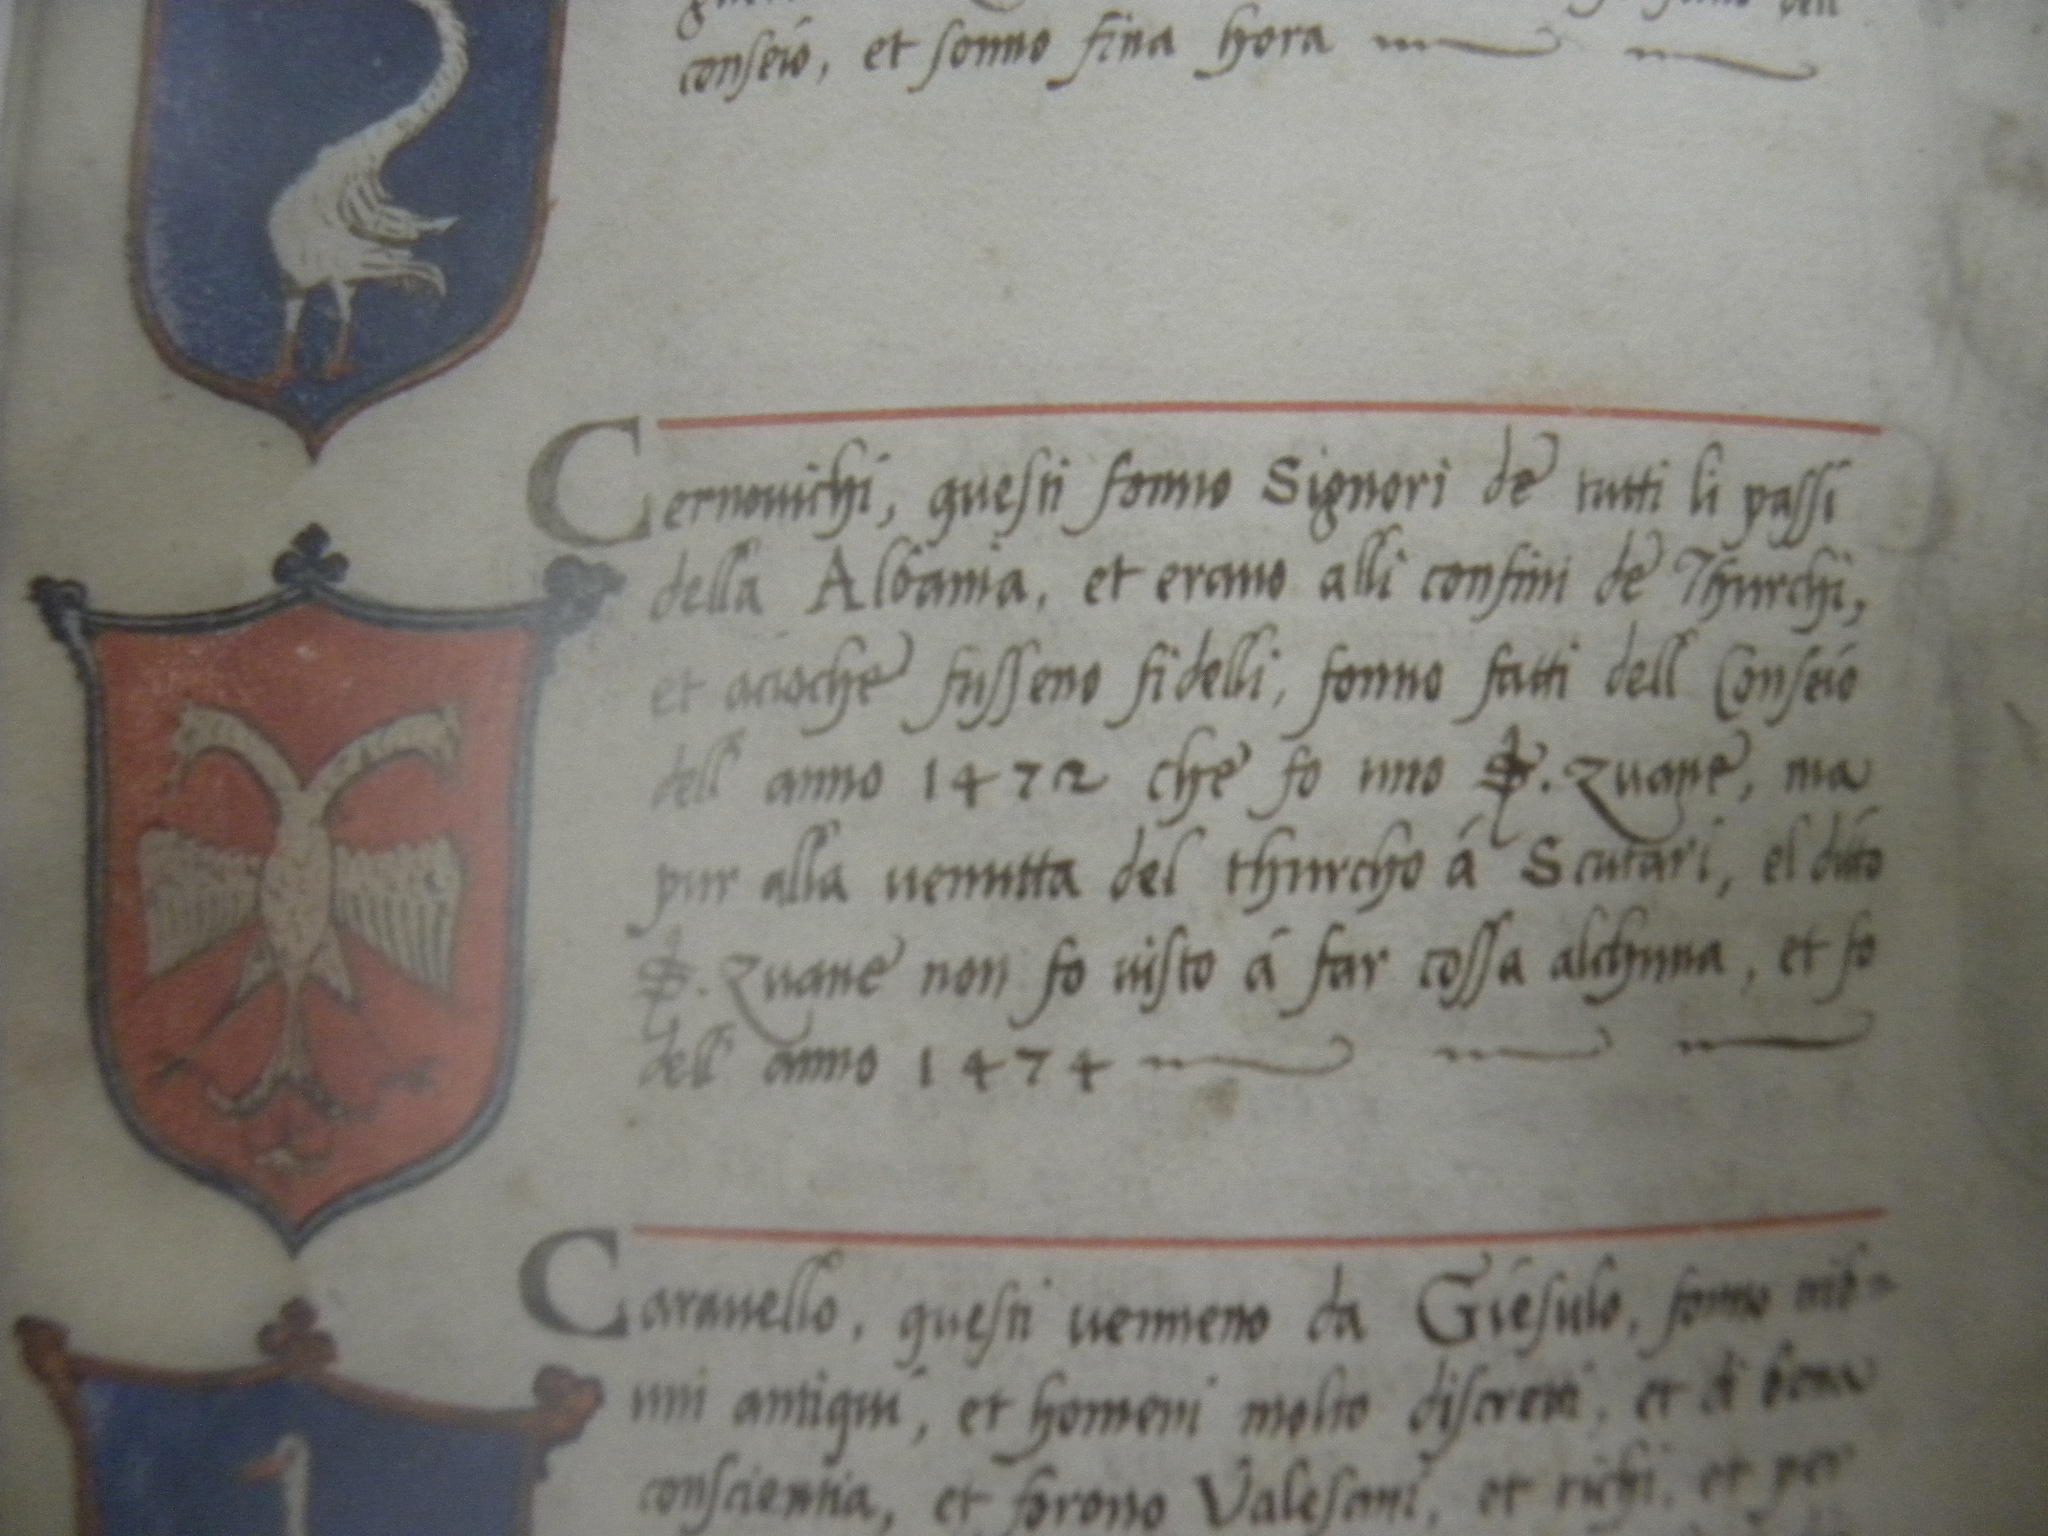 conseió, et sonno fina hora
Cernouichi, questi fonno Signori de tutti li passi
della Albania, et erano alli confini de Thurchi,
et acioche fusseno fidelli, fonno fatti dell Conseió
dell anno 1472 che fo uno S. Zuane, ma
pur alla uenutta del thurcho á Scutari, el ditto
S. Zuane non fo uisto á far cossa alchuna, et fo
dell' anno 1474
Carauello, questi uenneno da Giesulo, fonno
antiqui, et homeni molto discreti, et di bona
conscientia, et forono Valesani, et richi, et per